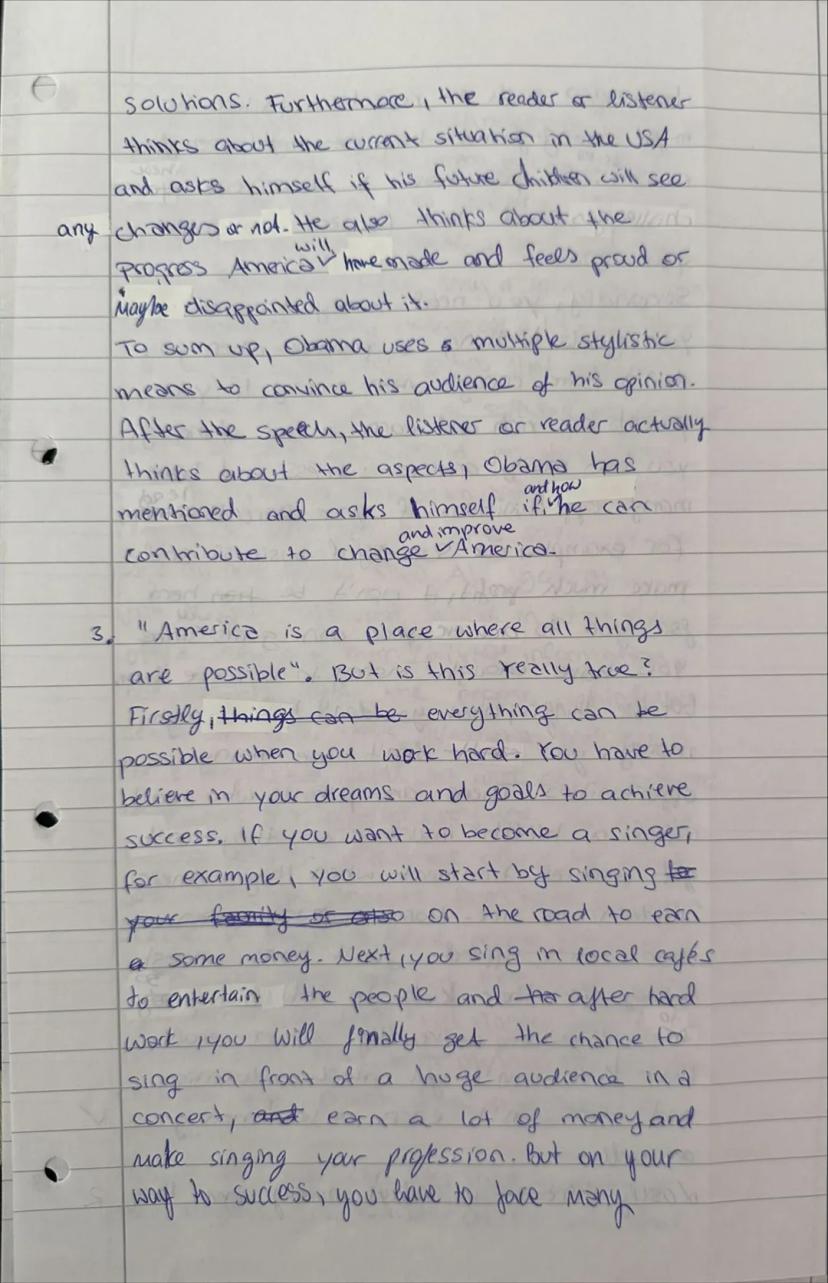 solutions. Furthermore, the reader or listener
thinks about the current situation in the USA
and asks himself if his future children will see
any changes or not. He also thinks about the
progress America will have made and feels proud or
maybe disappointed about it.
To sum up, Obama uses multiple stylistic
means to convince his audience of his opinion.
After the speech, the listener or reader actually
thinks about the aspects, Obama has
mentioned and asks himself if and how he can
contribute to change and improve America.
3. "America is a place where all things
are possible". But is this really true?
Firstly, things can be everything can be
possible when you work hard. You have to
believe in your dreams and goals to achieve
success. If you want to become a singer,
for example, you will start by singing to
your family or also on the road to earn
a some money. Next, you sing in local cafés
to entertain the people and after hard
work, you will finally get the chance to
sing in front of a huge audience in a
concert, and earn a lot of money and
make singing your profession. But on your
way to success, you have to face many